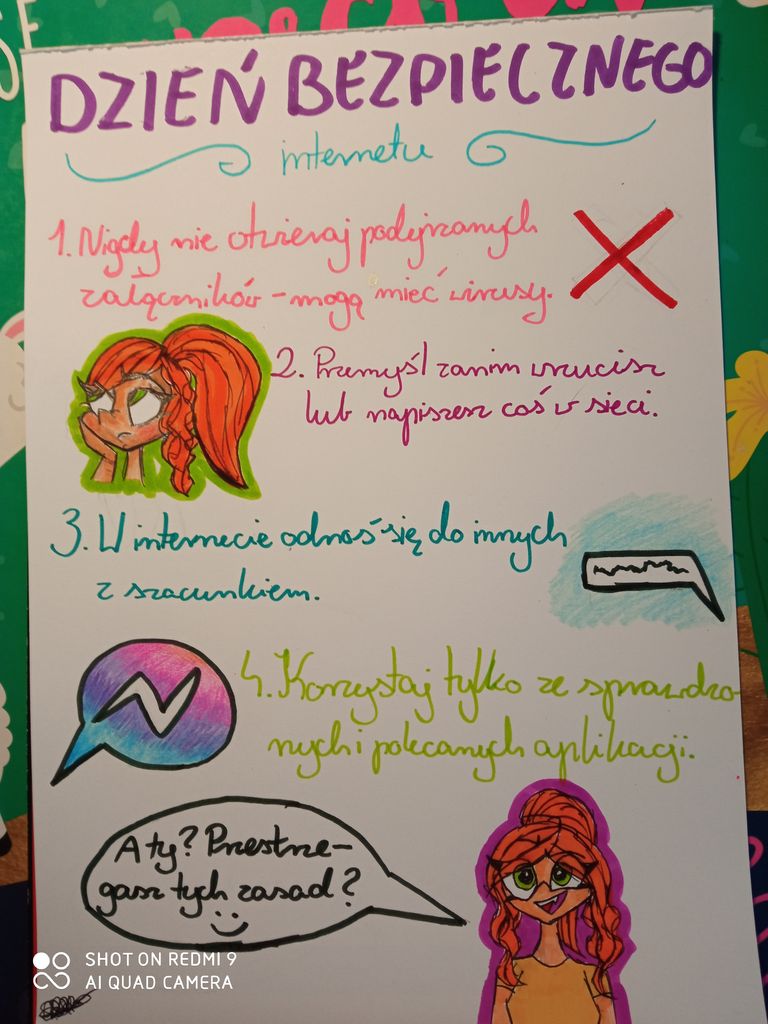 DZIEŃ BEZPIECZNEGO
internetu
1. Nigdy nie otwieraj podejrzanych
załączników - mogą mieć wirusy.
2. Przemyśl zanim wrzucisz
lub napiszesz coś w sieci.
3. W internecie odnoś się do innych
z szacunkiem.
4. Korzystaj tylko ze sprawdzo-
nych i polecanych aplikacji.
A ty? Przestrze-
gasz tych zasad?
SHOT ON REDMI 9
AI QUAD CAMERA